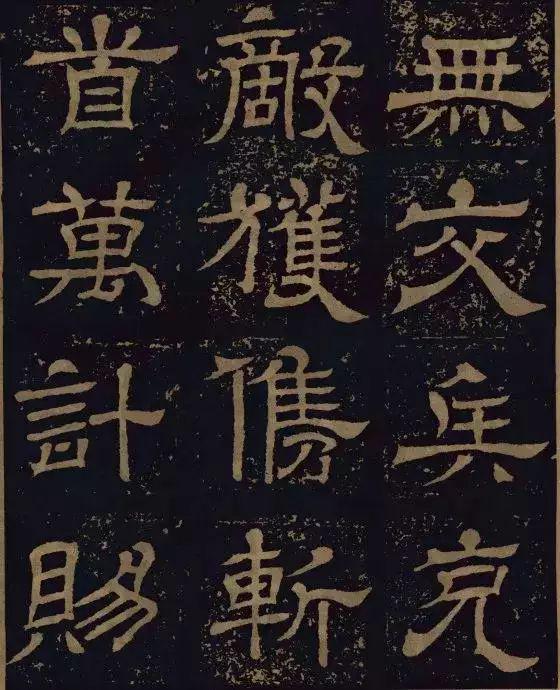 無交兵克
敵獲儁斬
首萬計賜